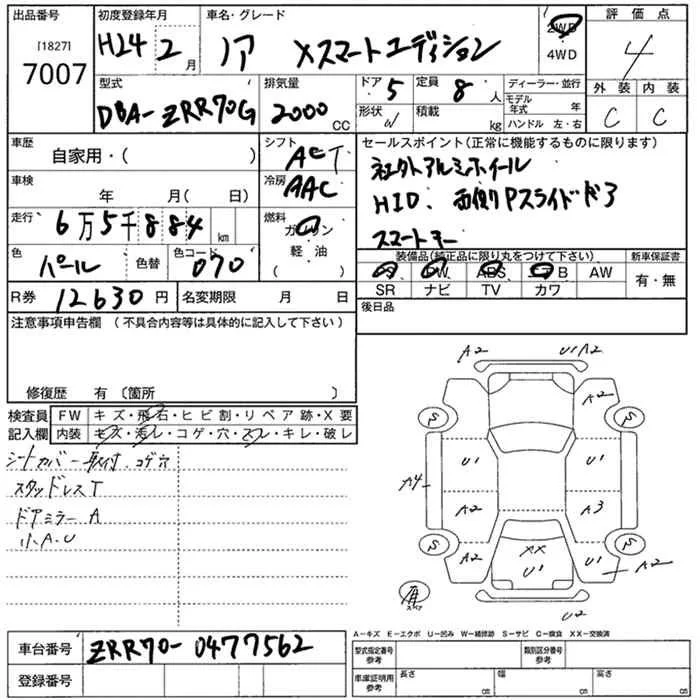 出品番号 初度登録年月 車名・グレード 2WD 評価点
[1827] H24 2月 ノア Xスマートエディション 4WD 4
7007
型式 排気量 ドア 5 定員 8人 ディーラー・並行 外装 内装
DBA-ZRR70G 2000CC 形状 W 積載 kg モデル年式 年 C C
ハンドル 左・右
車歴 シフト セールスポイント(正常に機能するものに限ります)
自家用・( ) ACT 社外アルミホイール
車検 冷房 HID、両側Pスライドドア
年 月( 日) AAC スマートキー
走行 6万5千884km 燃料 ガソリン
軽・油( )
色 パール 色替 色コード 070 装備品(純正品に限り丸をつけて下さい) 新車保証書
PS PW ABS エアB AW 有・無
SR ナビ TV カワ
R券 12630円 名変期限 月 日 後日品
注意事項申告欄(不具合内容等は具体的に記入して下さい)
修復歴 有〔箇所 〕
検査員 FW キズ・飛石・ヒビ割・リペア跡・X要
記入欄 内装 キズ・汚レ・コゲ・穴・スレ・キレ・破レ
シートカバー取付、コゲ穴
スタッドレスT
ドアミラーA
小A.U
A2 U1A2
A2
S S
U1 U1
A4
A2 A3
S S
A2 XX U1 A2
U1
有 スペア
U2
A-キズ E-エクボ U-凹み W-補修跡 S-サビ C-腐食 XX-交換済
車台番号 ZRR70-0477562
登録番号
型式指定番号 参考 類別区分番号 参考
車庫証明用 参考 長さ cm 幅 cm 高さ cm